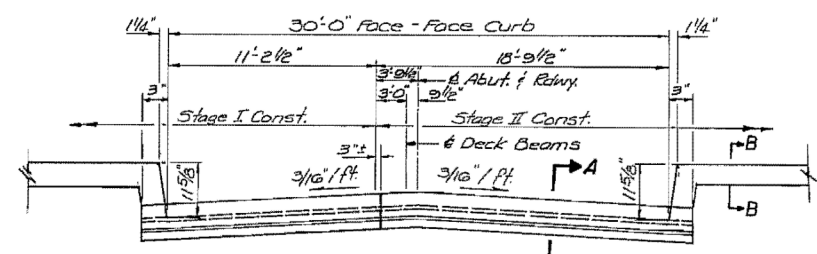 1¼" 30'-0" Face - Face Curb 1¼"
11'-2½" 18'-9½"
3'-9½" ℄ Abut. & Rdwy.
3" 3'-0" 9½" 3"
Stage I Const. Stage II Const.
℄ Deck Beams
B
3"±
A
11⅝" 3/16"/ft. 3/16"/ft. 11⅝"
B